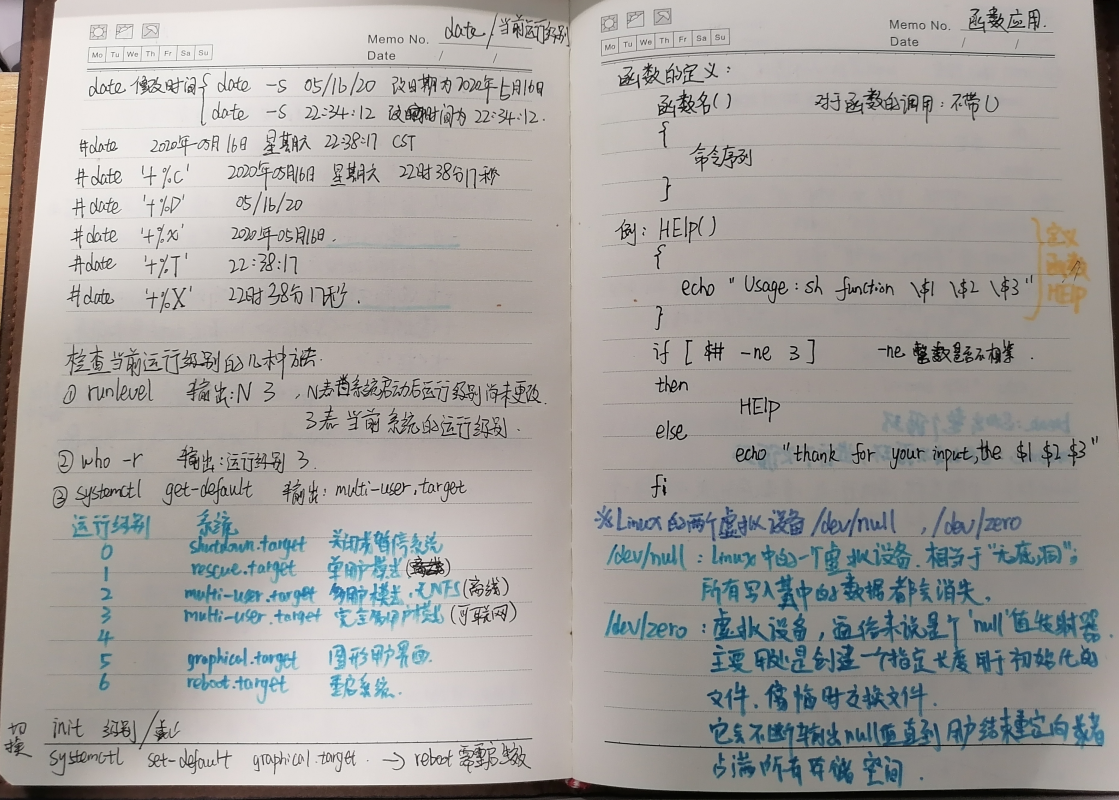 Mo Tu We Th Fr Sa Su
Memo No. date/当前运行级别
Date / /
date 修改时间 { date -s 05/16/20 改日期为2020年5月16日
date -s 22:34:12 改时间为 22:34:12.
#date 2020年05月16日 星期六 22:38:17 CST
#date '+%c' 2020年05月16日 星期六 22时38分17秒
#date '+%D' 05/16/20
#date '+%x' 2020年05月16日.
#date '+%T' 22:38:17
#date '+%X' 22时38分17秒.
检查当前运行级别的几种方法.
① runlevel 输出:N 3 , N表首系统启动后运行级别尚未更改.
3表当前系统的运行级别.
② who -r 输出:运行级别 3.
③ systemctl get-default 输出: multi-user.target
运行级别 系统
0 shutdown.target 关闭或暂停系统
1 rescue.target 单用户模式(离线)
2 multi-user.target 多用户模式.无NFS(离线)
3 multi-user.target 完全多用户模式(可联网)
4
5 graphical.target 图形用户界面.
6 reboot.target 重启系统.
切换
init 级别/
systemctl set-default graphical.target. → reboot 需重启生效
Mo Tu We Th Fr Sa Su
Memo No. 函数应用.
Date / /
函数的定义:
函数名() 对于函数的调用:不带()
{
命令序列
}
例: HElp()
{
echo " Usage: sh function \$1 \$2 \$3 "
}
定义
函数
HElp
if [ $# -ne 3 ] -ne 整数是否不相等.
then
HElp
else
echo "thank for your input,the $1 $2 $3"
fi
※Linux的两个虚拟设备/dev/null , /dev/zero
/dev/null : Linux中的一个虚拟设备.相当于"无底洞";
所有写入其中的数据都会消失.
/dev/zero : 虚拟设备,通俗来说是个'null'值发射器.
主要用处是创建一个指定长度用于初始化的
文件.像临时交换文件.
它会不断输出null值直到用户结束重定向或者
占满所有存储空间.